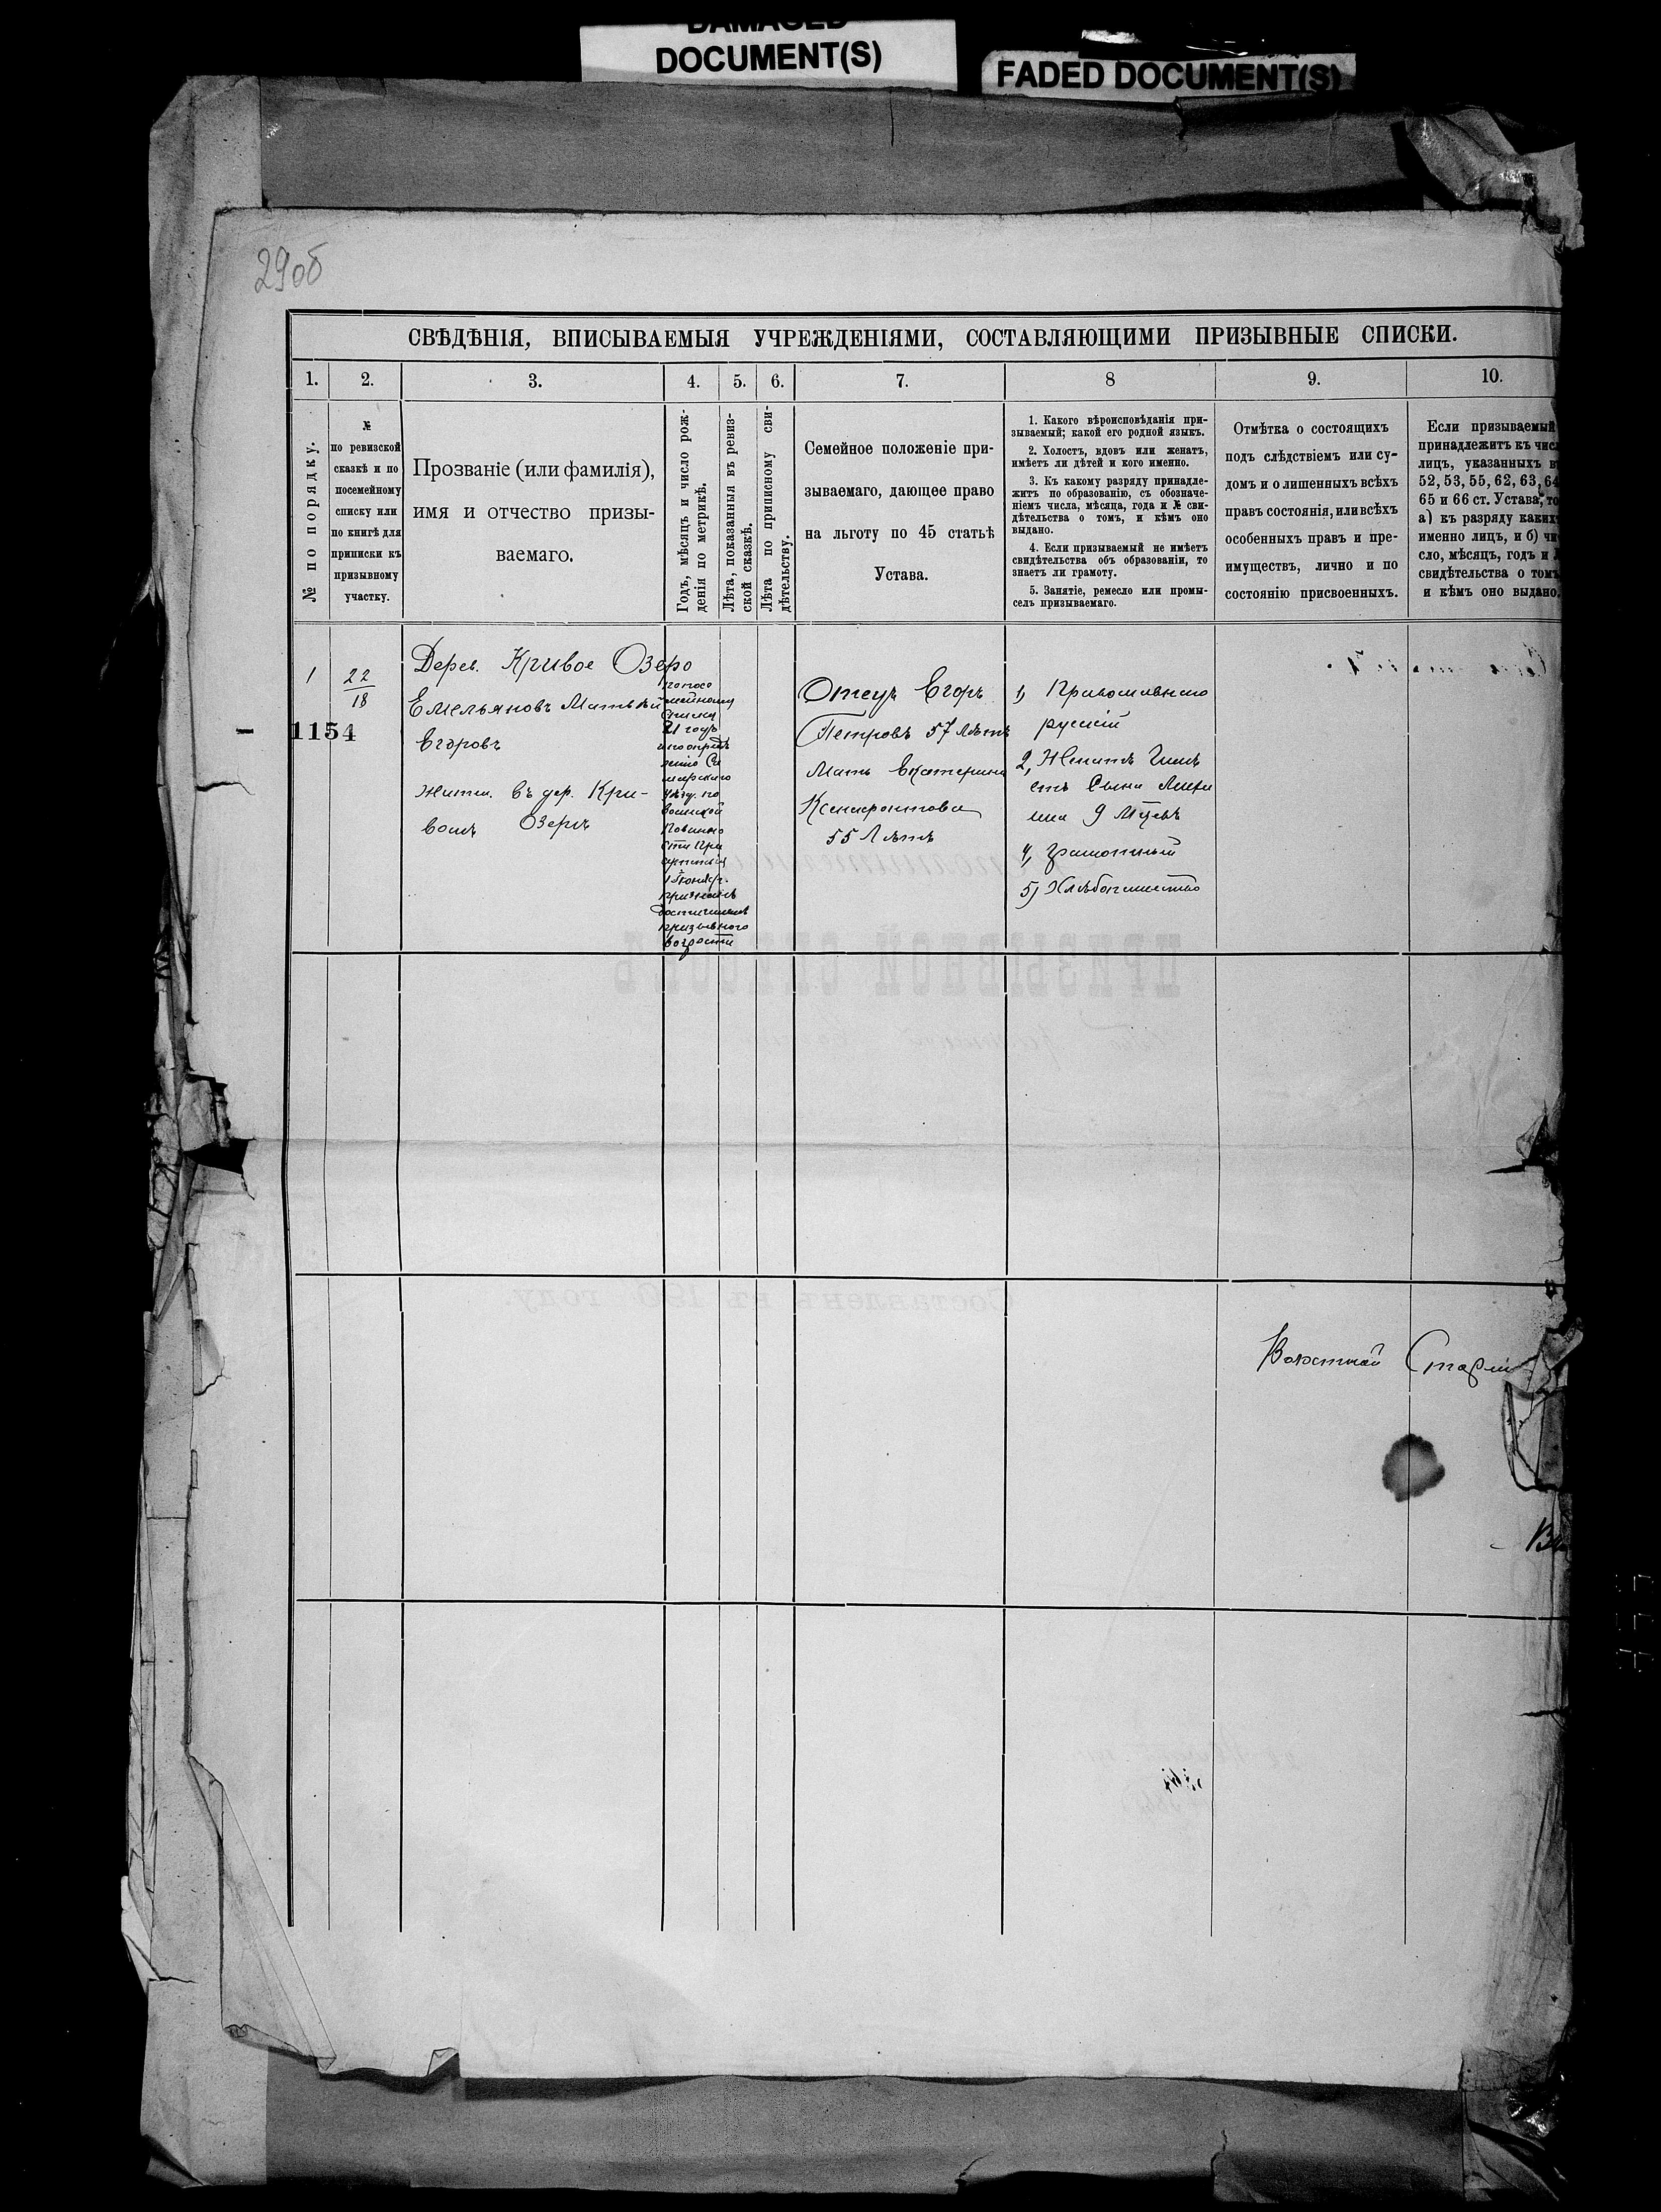 DAMAGED
DOCUMENT(S)
FADED DOCUMENT(S)
29об
СВѢДѢНІЯ, ВПИСЫВАЕМЫЯ УЧРЕЖДЕНІЯМИ, СОСТАВЛЯЮЩИМИ ПРИЗЫВНЫЕ СПИСКИ.
1.
2.
3.
4.
5.
6.
7.
8
9.
10.
№ по порядку.
№
по ревизской
сказкѣ и по
посемейному
списку или
по книгѣ для
приписки къ
призывному
участку.
Прозваніе (или фамилія),
имя и отчество призы-
ваемаго.
Годъ, мѣсяцъ и число рож-
денія по метрикѣ.
Лѣта, показанныя въ ревиз-
ской сказкѣ.
Лѣта по приписному сви-
дѣтельству.
Семейное положеніе при-
зываемаго, дающее право
на льготу по 45 статьѣ
Устава.
1. Какого вѣроисповѣданія при-
зываемый; какой его родной языкъ.
2. Холостъ, вдовъ или женатъ,
имѣетъ ли дѣтей и кого именно.
3. Къ какому разряду принадле-
житъ по образованію, съ обозначе-
ніемъ числа, мѣсяца, года и № сви-
дѣтельства о томъ, и кѣмъ оно
выдано.
4. Если призываемый не имѣетъ
свидѣтельства объ образованіи, то
знаетъ ли грамоту.
5. Занятіе, ремесло или промы-
селъ призываемаго.
Отмѣтка о состоящихъ
подъ слѣдствіемъ или су-
домъ и о лишенныхъ всѣхъ
правъ состоянія, или всѣхъ
особенныхъ правъ и пре-
имуществъ, лично и по
состоянію присвоенныхъ.
Если призываемый
принадлежитъ къ чис
лицъ, указанныхъ в
52, 53, 55, 62, 63, 64
65 и 66 ст. Устава, то
а) къ разряду каких
именно лицъ, и б) чи
сло, мѣсяцъ, годъ и
свидѣтельства о томъ
и кѣмъ оно выдано.
1
22
18
1154
Дерев. Кривое Озеро
Емельяновъ Матвѣй
Егоровъ
Жител. въ дер. Кри-
вомъ Озерѣ
по посе
мейному
списку
21 годъ
и по опредѣ
ленію Са
марскаго
уѣзд. по
воинской
повинно
сти При
сутствія
признанъ
достигшимъ
призывного
возраста
Отецъ Егоръ
Петровъ 57 лѣтъ
Мать Екатерина
Ксенофонтова
55 Лѣтъ
1) Православнаго
русскій
2, Женатъ Имѣ
етъ Сына
9 Мѣс
4, грамотный
5) Хлѣбопашество
Волостной Старши